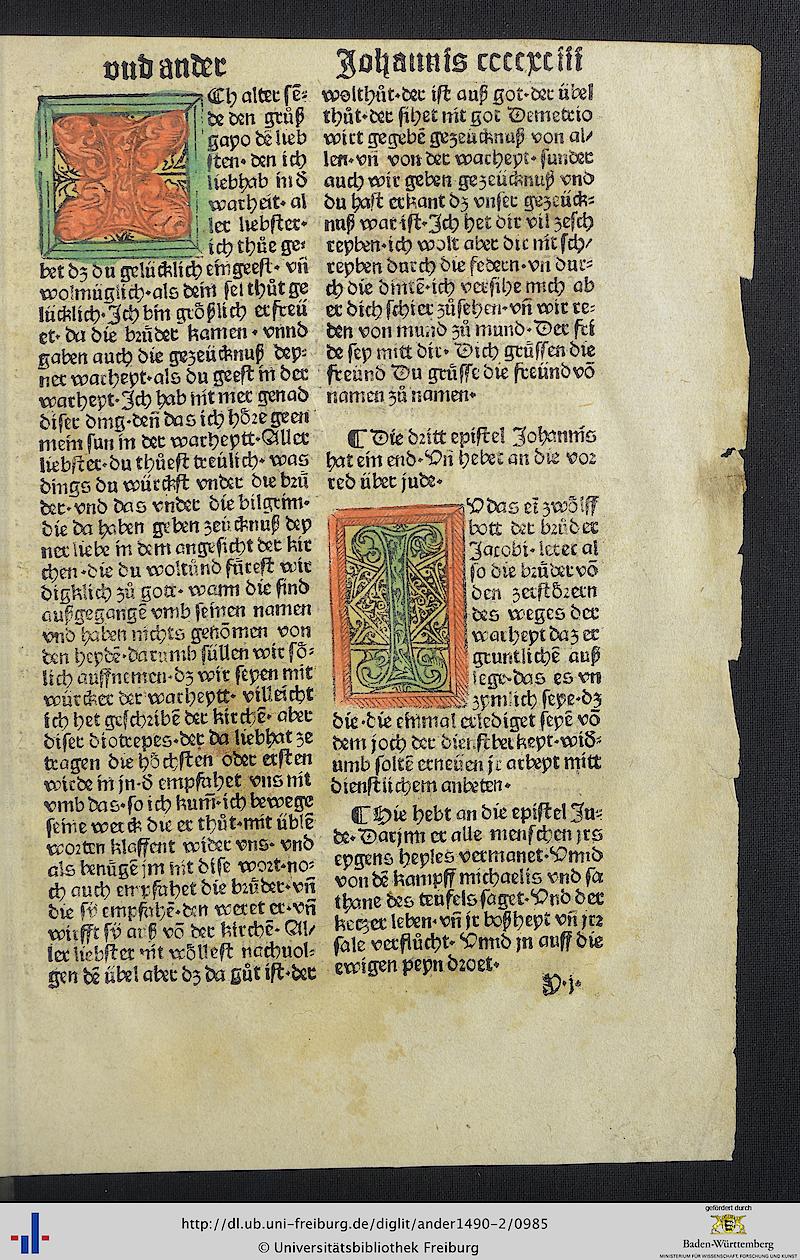 vnd ander
Johannis ccccxciii
Ch alter sē⸗
de den grůß
gayo dē lieb
sten· den ich
liebhab in d
warheit· al
ler liebster·
ich thůe ge⸗
bet dz du gelücklich eingeest· vñ
wolmüglich·als dein sel thůt ge
lücklich·Ich bin größlich erfreü
et· da die brůder kamen· vnnd
gaben auch die gezeücknuß dey⸗
ner warheyt·als du geest in der
warheyt·Ich hab nit mer genad
diser ding·deñ das ich höre geen
mein sun in der warheytt·Aller
liebster·du thůest treülich· was
dings du würckst vnder die brů
der·vnd das vnder die bilgrim·
die da haben geben zeücknuß dey
ner liebe in dem angesicht der kir
chen·die du woltůnd fürest wir
digklich zů gott· wann die sind
außgegangē vmb seinen namen
vnd haben nichts genōmen von
den heydē·darumb süllen wir sō⸗
lich auffnemen·dz wir seyen mit
würcker der warheytt· villeicht
ich het geschribē der kirchē· aber
diser diotrepes·der da liebhat ze
tragen die höchsten oder ersten
wirde in jn·d empfahet vns nit
vmb das·so ich kum̄·ich bewege
seine werck die er thůt·mit üblē
worten klaffent wider vns· vnd
als benügē jm nit dise wort·no⸗
ch auch empfahet die brůder·vñ
die sÿ empfahē·den weret er·vñ
wirfft sÿ auß vō der kirchē· Al/
ler liebster nit wöllest nachuol⸗
gen dē übel aber dz da gůt ist·der
wolthůt·der ist auß got·der übel
thůt·der sihet nit got Demetrio
wirt gegebē gezeücknuß von al/
len·vñ von der warheyt· sunder
auch wir geben gezeücknuß vnd
du hast erkant dz vnser gezeück⸗
nuß war ist·Ich het dir vil zesch
reyben·ich wolt aber dir nit sch/
reyben durch die federn·vñ dur⸗
ch die dintē·ich versihe mich ab
er dich schier zůsehen·vñ wir re⸗
den von mund zů mund· Der fri
de sey mitt dir· Dich grüssen die
freünd Du grüsse die freünd vō
namen zů namen·
¶ Die dritt epistel Johannis
hat ein end·Vñ hebet an die vor
red über jude·
Vdas ei zwölff
bott der brůder
Jacobi·leret al
so die brůder vō
den zerstörern
des weges der
warheyt daz er
gruntlichē auß
lege·das es vn
zymlich seye·dz
die·die einmal erlediget seyē vō
dem joch der dienstberkeyt·wid⸗
umb soltē erneüen jr arbeyt mitt
dienstlichem anbeten·
¶ Hie hebt an die epistel Ju⸗
de· Darjnn er alle menschen jrs
eygens heyles vermanet·Vnnd
von dē kampff michaelis vnd sa
thane des teufels saget·Vnd der
ketzer leben·vñ jr boßheyt vñ jrr
sale verflücht· Vnnd jn auff die
ewigen peyn droet·
http://dl.ub.uni-freiburg.de/diglit/ander1490-2/0985
© Universitätsbibliothek Freiburg
gefördert durch
Baden-Württemberg
MINISTERIUM FÜR WISSENSCHAFT, FORSCHUNG UND KUNST